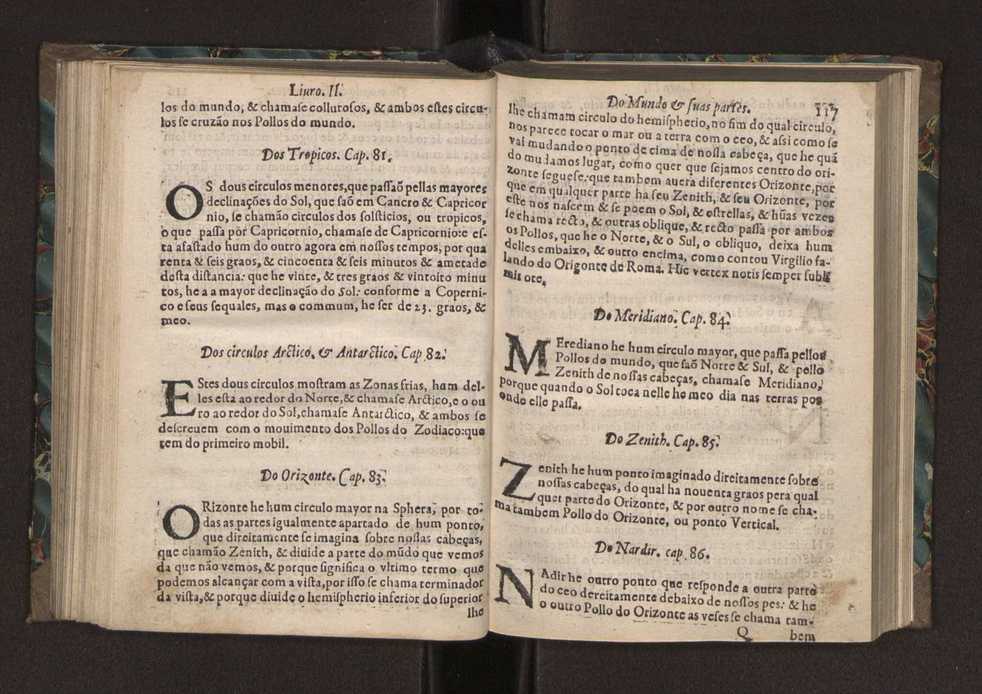 Liuro. II.
los do mundo, & chamase collurosos, & ambos estes circu-
los se cruzão nos Pollos do mundo.
Dos Tropicos. Cap. 81.
OS dous circulos menores, que passaõ pellas mayores
declinações do Sol, que saõ em Cancro & Capricor
nio, se chamão circulos dos solsticios, ou tropicos,
o que passa por Capricornio, chamase de Capricornio: e es-
ta afastado hum do outro agora em nossos tempos, por qua
renta & seis graos, & cincoenta & seis minutos & ametade
desta distancia: que he vinte, & tres graos & vintoito minu
tos, he a a mayor declinação do Sol: conforme a Coperni-
co e seus sequales, mas o commum, he ser de 23. graos, &
meo.
Dos circulos Arctico, & Antarctico. Cap 82.
EStes dous circulos mostram as Zonas frias, hum del-
les esta ao redor do Norte, & chamase Arctico, e o ou
ro ao redor do Sol, chamase Antarctico, & ambos se
descreuem com o mouimento dos Pollos do Zodiaco: que
tem do primeiro mobil.
Do Orizonte. Cap. 83.
ORizonte he hum circulo mayor na Sphera, por to-
das as partes igualmente apartado de hum ponto,
que direitamente se imagina sobre nossas cabeças,
que chamão Zenith, & diuide a parte do mũdo que vemos
da que não vemos, & porque significa o vltimo termo que
podemos alcançar com a vista, por isso se chama terminador
da vista, & porque diuide o hemispherio inferior do superior
lhe
Do Mundo & suas partes. 117
lhe chamam circulo do hemispherio, no fim do qual circulo,
nos parece tocar o mar ou a terra com o ceo, & assi como se
vai mudando o ponto de cima de nossa cabeça, que he quã
do mudamos lugar, como quer que sejamos centro do ori-
zonte seguese: que tambem auera diferentes Orizonte, por
que em qualquer parte ha seu Zenith, & seu Orizonte, por
este nos nascem & se poem o Sol, & estrellas, & hũas vezes
se chama recto, & outras oblique, & recto passa por ambos
os Pollos, que he o Norte, & o Sul, o obliquo, deixa hum
delles embaixo, & outro encima, como contou Virgilio fa-
lando do Origonte de Roma. Hic vertex notis semper subli
mis ote,
Do Meridiano. Cap. 84.
MErediano he hum circulo mayor, que passa pellos
Pollos do mundo, que saõ Norte & Sul, & pello
Zenith de nossas cabeças, chamase Meridiano,
porque quando o Sol toca nelle he meo dia nas terras por
onde elle passa.
Do Zenith. Cap. 85.
Zenith he hum ponto imaginado direitamente sobre
nossas cabeças, do qual ha nouenta graos pera qual
quer parte do Orizonte, & por outro nome se cha-
ma tambem Pollo do Orizonte, ou ponto Vertical.
Do Nardir. cap 86.
NAdir he outro ponto que responde a outra parte
do ceo dereitamente debaixo de nossos pes: & he
o outro Pollo do Orizonte as veses se chama tam-
Q bem